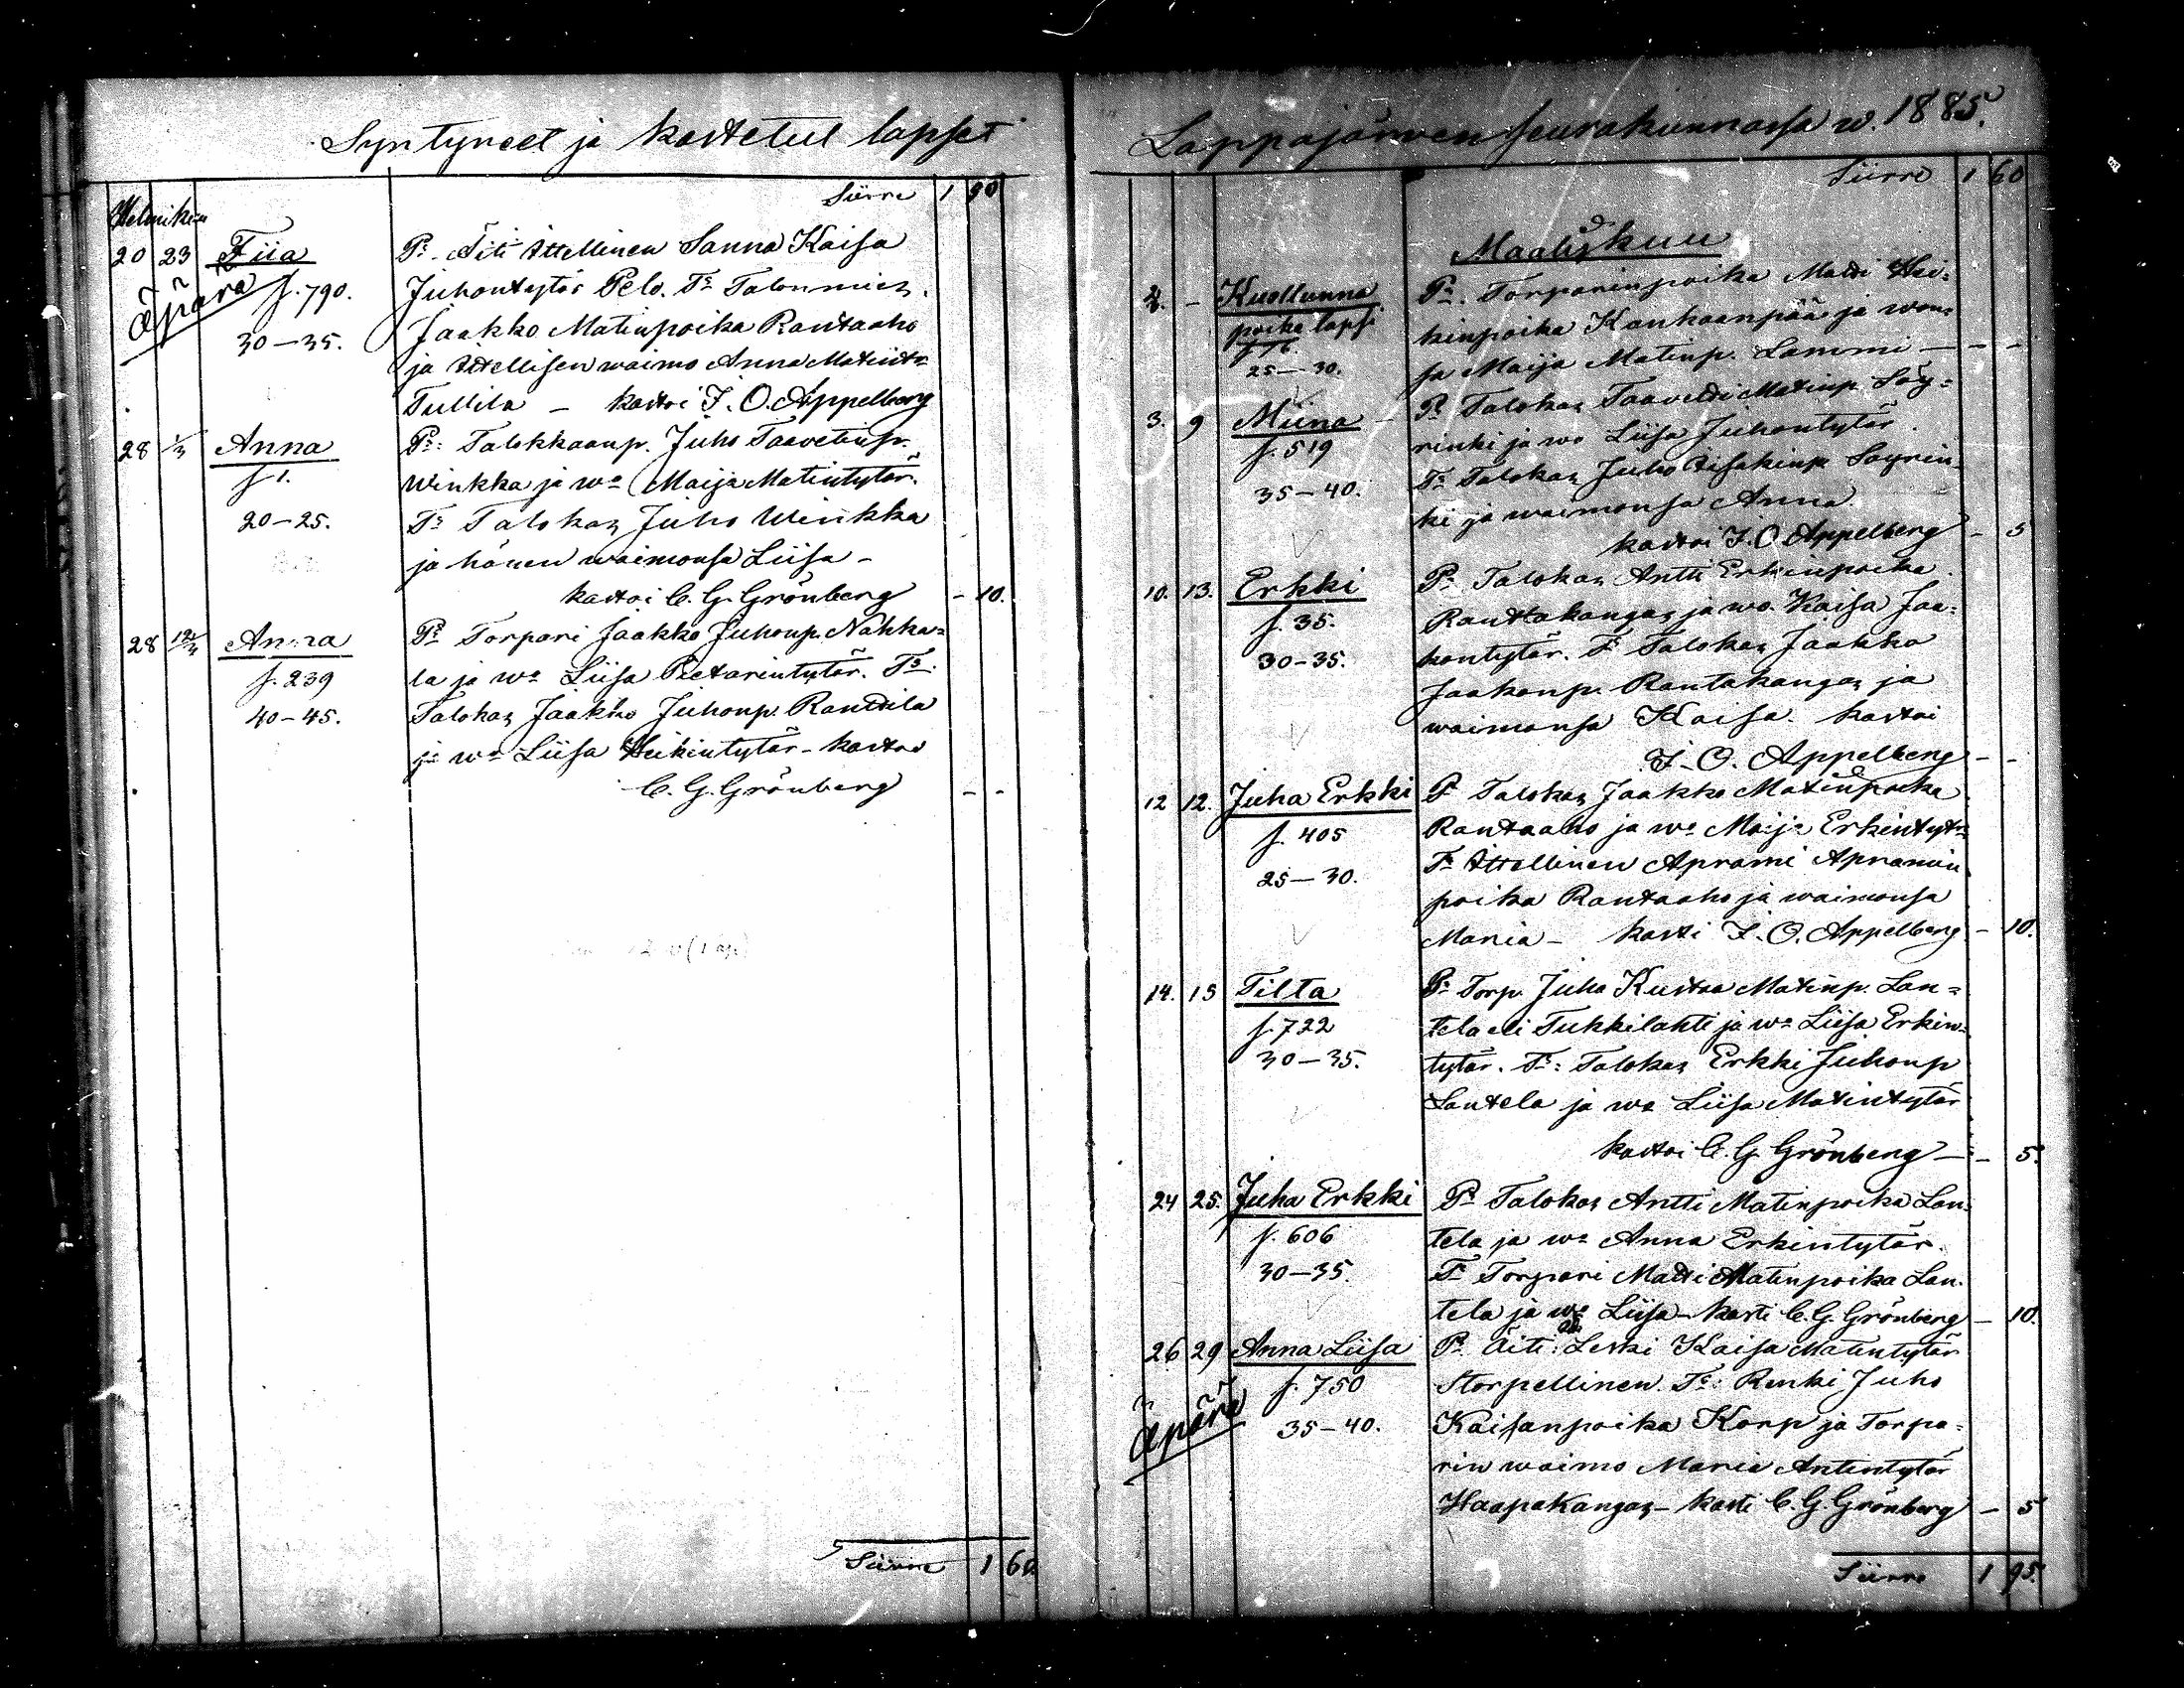 Syntyneet ja kastetut lapset
Siirre 1 90
Helmikuu
20 23 Fiia Prs Äiti Itsellinen Sanna Kaisa
Äpärä f. 790. Juhontytär Pelo. Trs Talonmies
30-35. Jaakko Matinpoika Rantaaho
ja Itsellisen waimo Anna Matintr
Tullila - kastoi J. O. Appelberg
28 1/3 Anna Prs: Talokkaanp. Juho Taavetinp.
f 1. Winkka ja wo Maija Matintytär.
20-25. Trs Talokas Juho Winkka
ja hänen waimonsa Liisa -
kastoi C. G. Grönberg - 10.
28 Anna Prs Torpari Jaakko Juhonp. Nahka=
f. 239 la ja wo Liisa Pietarintytär. Trs
40-45. Talokas Jaakko Juhonp. Rantila
ja wo Liisa Heikintytär - kastoi
C. G. Grönberg - -
Siirre 1 60
Lappajärwen seurakunnassa w. 1885.
Siirre 1 60
Maaliskuu
- Kuollunna Prs. Torparinpoika Matti Hei=
poika lapsi kinpoika Kanhaanpää ja wom=
25-30. sa Maija Matinp. Lammi - - -
3. 9 Miina Prs Talokas Taavetti Matinp. Söy=
f. 519 rinki ja wo Liisa Juhontytär.
35-40. Trs Talokas Juho Iisakinp Söyrin=
ki ja waimonsa Anna.
kastoi J. O. Appelberg - 5
10. 13. Erkki Prs Talokas Antti Erkinpoika
f. 35. Rantakangas ja wo. Kaisa Jaa=
30-35. kontytär. Trs Talokas Jaakko
Jaakonp. Rantakangas ja
waimonsa Kaisa. kastoi
J. O. Appelberg - -
12 12. Juha Erkki Prs Talokas Jaakko Matinpoika
f. 405 Rantaaho ja wo Maija Erkintyt=
25-30. Trs Itsellinen Aprami Apramin
poika Rantaaho ja waimonsa
Maria - kasti J. O. Appelberg - 10.
14. 15 Tilta Prs Torp. Juha Kustaa Matinp. Lan=
f. 722 tela eli Tukkilahti ja wo Liisa Erkin=
30-35. tytär. Trs: Talokas Erkki Juhonp
Lantela ja wo Liisa Matintytär
kastoi C. G. Grönberg - - 5.
24 25. Juha Erkki Prs Talokas Antti Matinpoika Lan=
f. 606 tela ja wo Anna Erkintytär.
30-35. Trs Torpari Matti Matinpoika Lan=
tela ja wo Liisa - kasti C. G. Grönberg - 10.
26 29 Anna Liisa Prs. Äiti: Leski Kaisa Matintytär
Äpärä f. 750 Storpellinen. Trs: Renki Juho
35-40. Kaisanpoika Korp ja Torpa=
rin waimo Maria Antintytär
Haapakangas - kasti C. G. Grönberg - 5
Siirre 1 95.